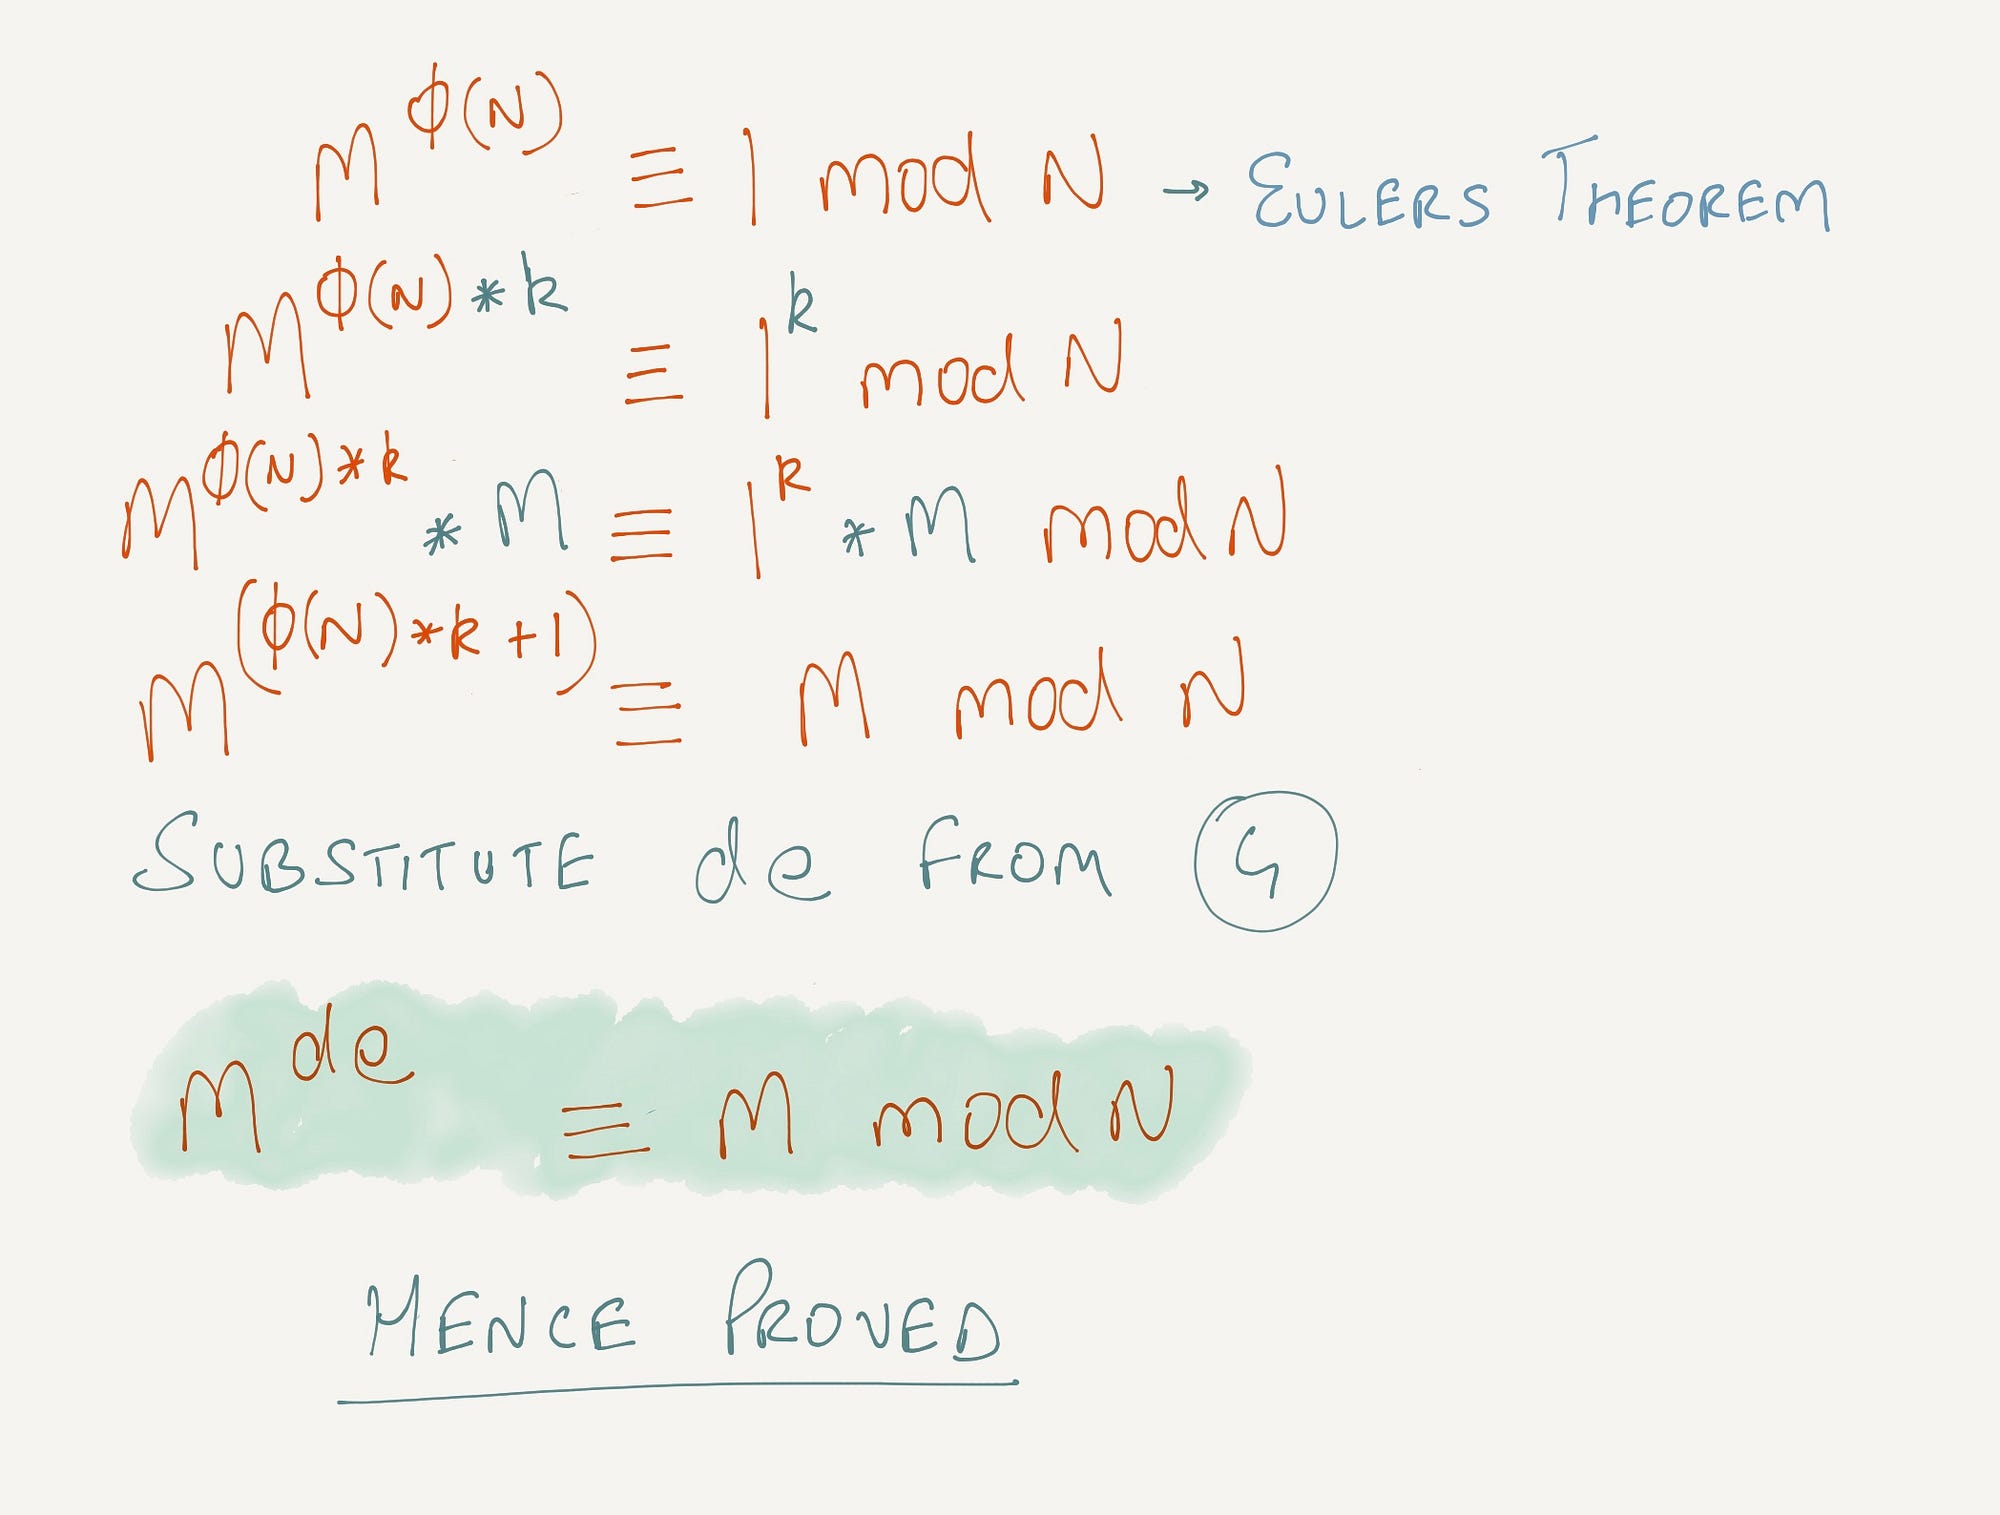 M^ϕ(N) ≡ 1 mod N → EULERS THEOREM
M^ϕ(N)*k ≡ 1^k mod N
M^ϕ(N)*k * M ≡ 1^k * M mod N
M^(ϕ(N)*k+1) ≡ M mod N
SUBSTITUTE de FROM
M^de ≡ M mod N
HENCE PROVED